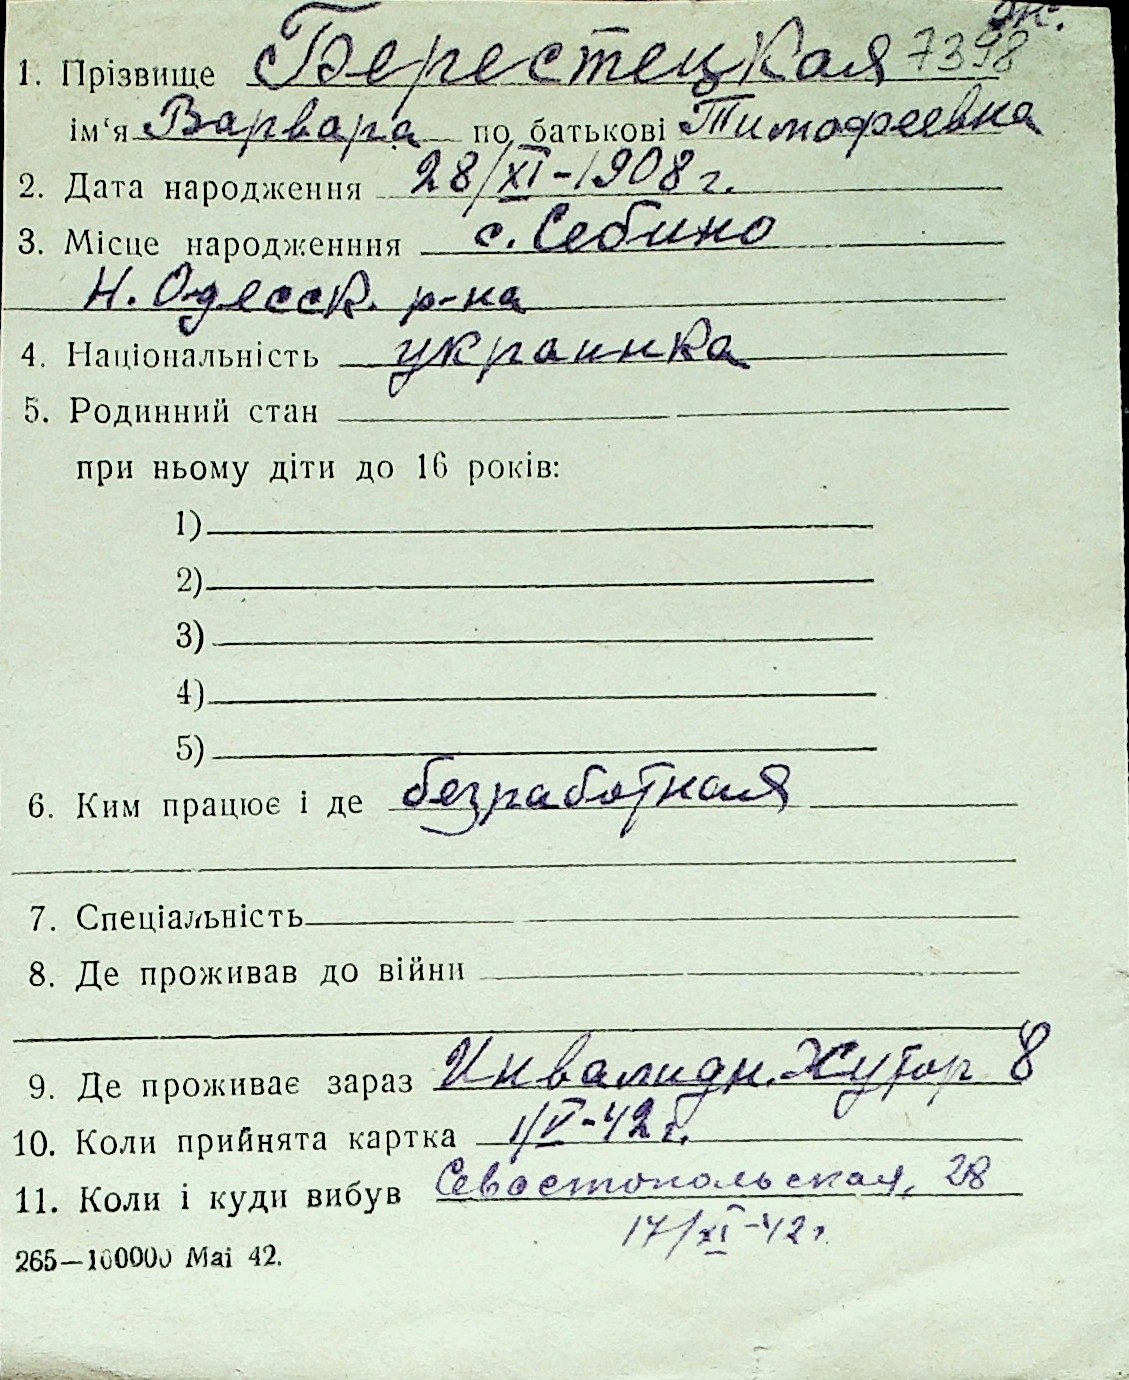 ж.
1. Прізвище Берестецкая 7398
ім'я Варвара по батькові Тимофеевна
2. Дата народження 28/XI-1908 г.
3. Місце народженння с. Себино
Н. Одесск. р-на
4. Національність украинка
5. Родинний стан
при ньому діти до 16 років:
1)
2)
3)
4)
5)
6. Ким працює і де безработная
7. Спеціальність
8. Де проживав до війни
9. Де проживає зараз Инвалидн. Хутор 8
10. Коли прийнята картка 1/V-42 г.
11. Коли і куди вибув Севастопольская, 28
17/XI-42 г.
265—100000 Mai 42.